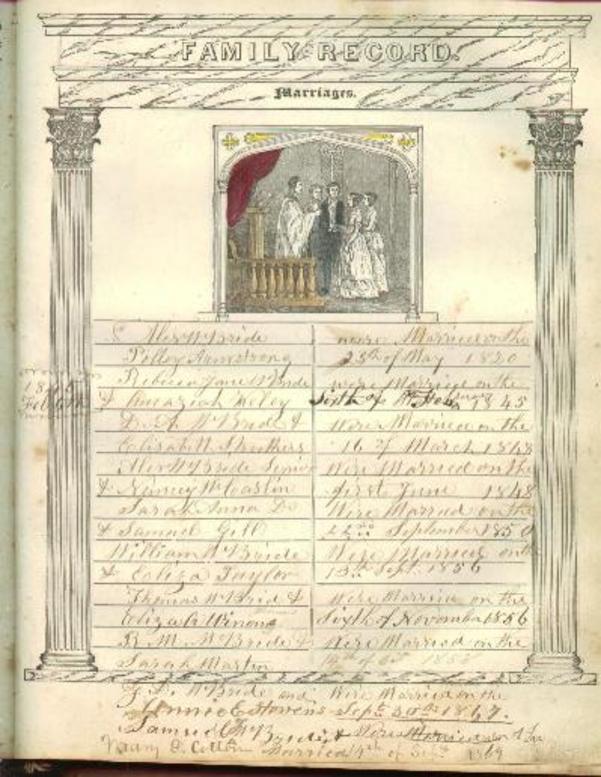 FAMILY RECORD.
Marriages.
Alex McBride were Married on the
Polley Armstrong 25th of May 1820
Rebecca Jane McBride were Married on the
& Neley Sixth of 1845
1845
D. A. McBride & Were Married on the
Elisabeth Struthers 16 of March 1848
Alex McBride Senior Were Married on the
& Nancy McCaslin first June 1848
Sarah Anna Were Married on the
& Samuel Gill September 1850
William McBride Were Married on the
& Eoliza Taylor 13th Sept. 1856
Thomas McBride & Were Married on the
Eliza A Winona Sixth of November 1856
R. M. McBride & Were Married on the
Sarah Martin of
McBride and Were Married on the
Stevens Sept. 1867.
Samuel McBride & Were Married
Nancy E. Married 4th of Sept. 1869